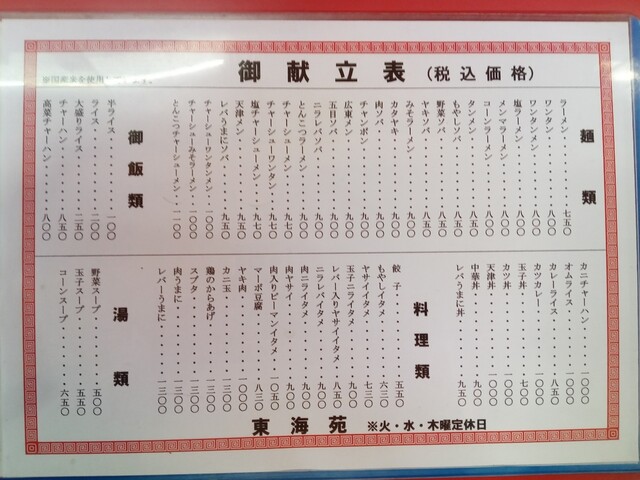 御献立表（税込価格）
麺類
ラーメン・・・・・・七五〇
ワンタン・・・・・・八〇〇
ワンタンメン・・・・・八〇〇
塩ラーメン・・・・・・八〇〇
メンマラーメン・・・・八〇〇
コーンラーメン・・・・八〇〇
タンメン・・・・・・八五〇
もやしソバ・・・・・・八五〇
野菜ソバ・・・・・・八五〇
ヤキソバ・・・・・・八五〇
みそラーメン・・・・・九〇〇
カタヤキ・・・・・・九〇〇
肉ソバ・・・・・・・九〇〇
チャンポン・・・・・・九〇〇
広東メン・・・・・・九〇〇
五目ソバ・・・・・・九〇〇
ニラレバソバ・・・・・九〇〇
とんこつラーメン・・・・九〇〇
チャーシューメン・・・・九七〇
チャーシューワンタン・・・九七〇
塩チャーシューメン・・・九七〇
天津メン・・・・・・九五〇
レバうまにソバ・・・・九五〇
チャーシューワンタンメン・・一〇〇〇
チャーシューみそラーメン・・一〇〇〇
とんこつチャーシューメン・・一一〇〇
御飯類
半ライス・・・・・・一〇〇
ライス・・・・・・・二〇〇
大盛りライス・・・・・二五〇
チャーハン・・・・・・八五〇
高菜チャーハン・・・・八〇〇
カニチャーハン・・・・一〇〇〇
オムライス・・・・・・一〇〇〇
カレーライス・・・・・八五〇
カツカレー・・・・・・一〇〇〇
玉子丼・・・・・・・七〇〇
カツ丼・・・・・・・一〇〇〇
天津丼・・・・・・・一〇〇〇
中華丼・・・・・・・九〇〇
レバうまに丼・・・・・九五〇
料理類
餃子・・・・・・・・五五〇
もやしイタメ・・・・・六三〇
ヤサイイタメ・・・・・七三〇
玉子ニライタメ・・・・九〇〇
レバー入りヤサイイタメ・・八五〇
ニラレバイタメ・・・・九〇〇
肉ニライタメ・・・・・九〇〇
肉ヤサイ・・・・・・九〇〇
肉入りピーマンイタメ・・一〇五〇
マーボ豆腐・・・・・・八三〇
ヤキ肉・・・・・・・一〇〇〇
カニ玉・・・・・・・一三〇〇
鶏のからあげ・・・・・一三〇〇
スブタ・・・・・・・一三〇〇
肉うまに・・・・・・一三〇〇
レバーうまに・・・・・一三〇〇
湯類
野菜スープ・・・・・・五五〇
玉子スープ・・・・・・五五〇
コーンスープ・・・・・六五〇
東海苑 ※火・水・木曜定休日